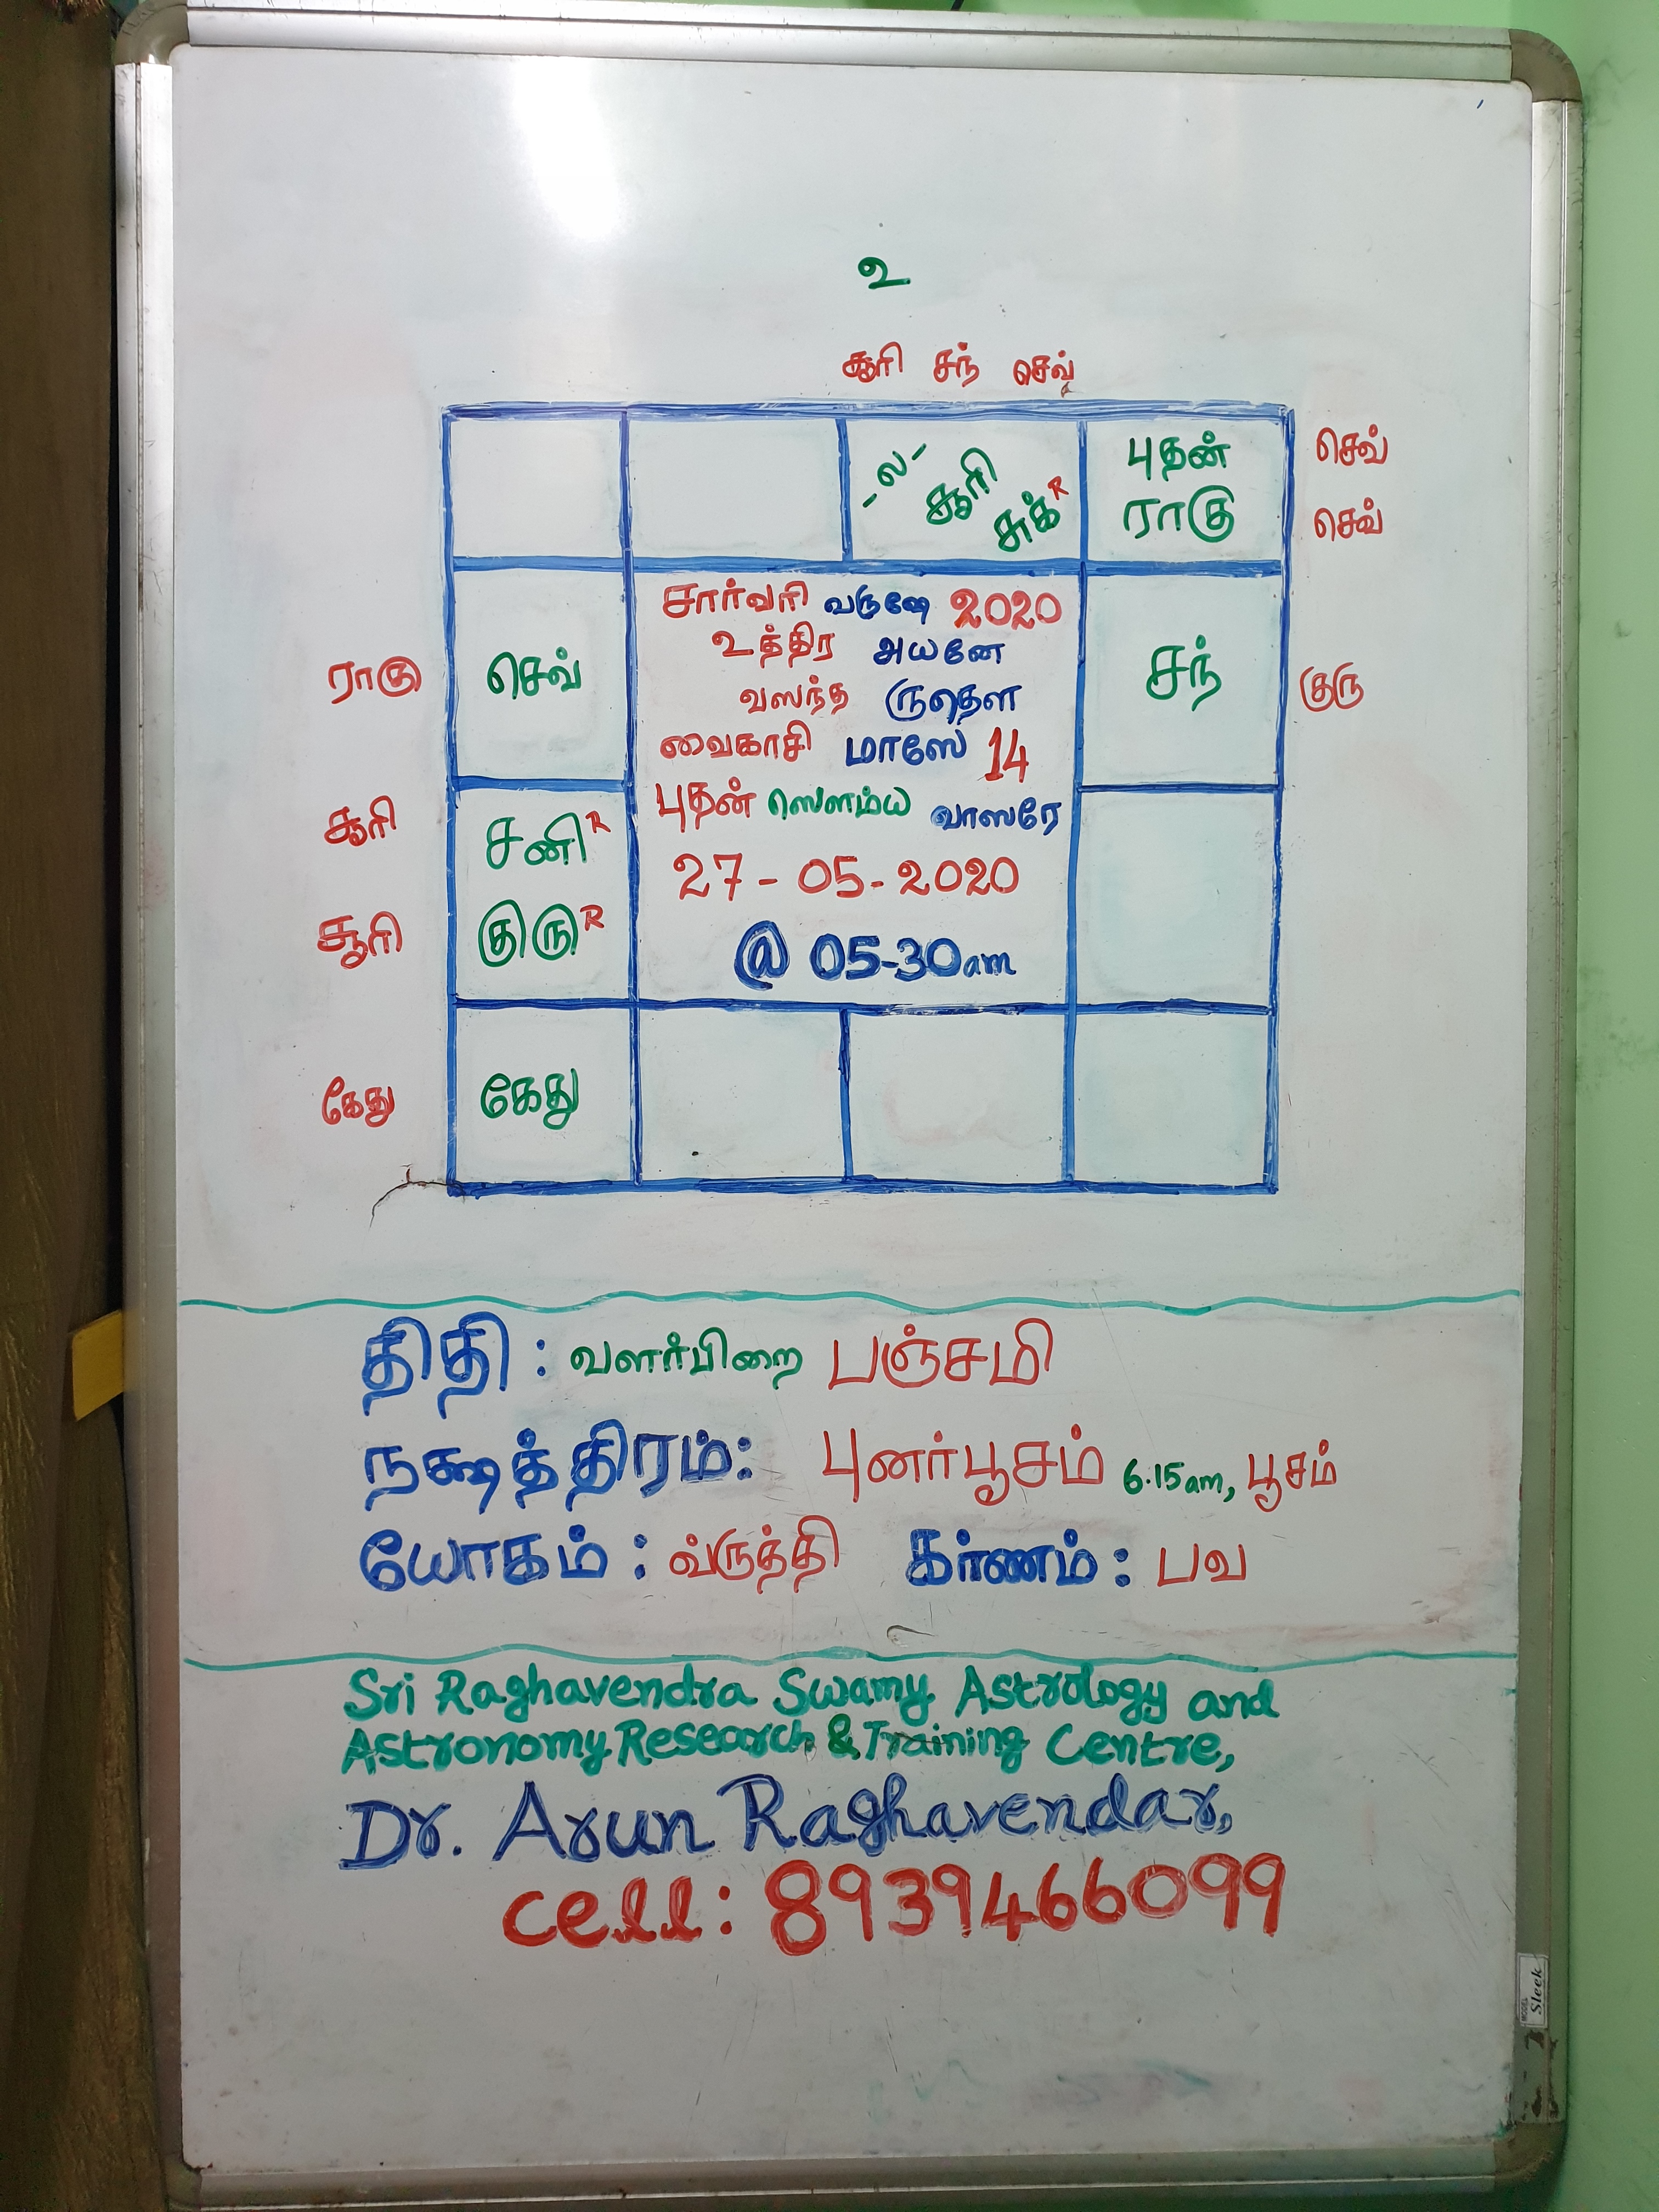 உ
சூரி சந் செவ்
-ல-
சூரி
சுக் R
புதன்
ராகு
செவ்
செவ்
ராகு
செவ்
சார்வரி வருஷே 2020
உத்திர அயனே
வஸந்த ருதௌ
வைகாசி மாஸே 14
புதன் ஸௌம்ய வாஸரே
27-05-2020
@ 05-30am
சந்
குரு
சூரி
சனி R
சூரி
குரு R
கேது
கேது
திதி : வளர்பிறை பஞ்சமி
நக்ஷத்திரம்: புனர்பூசம் 6.15am, பூசம்
யோகம் : வ்ருத்தி கர்ணம் : பவ
Sri Raghavendra Swamy Astrology and
Astronomy Research & Training Centre,
Dr. Arun Raghavendar,
cell: 8939466099
MODEL
Sleek